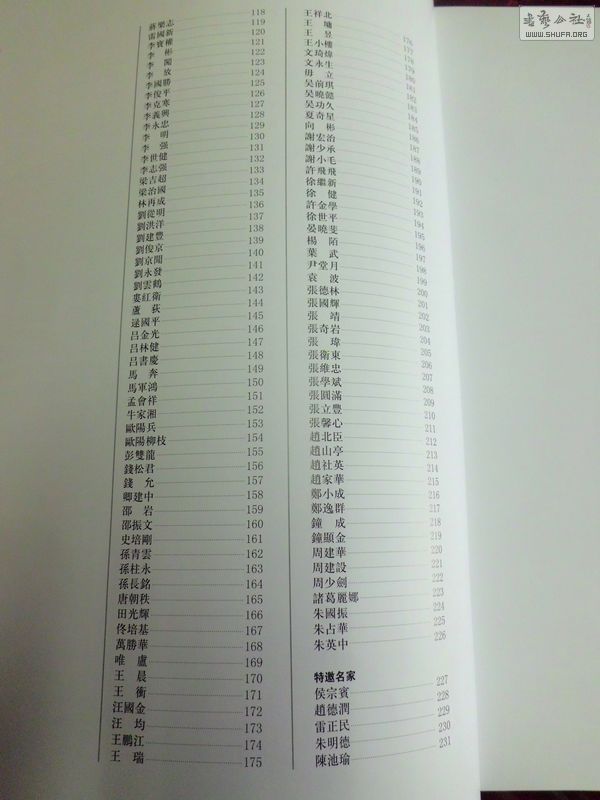 蔣樂志 118
雷國新 119
李寶權 120
李 彬 121
李 闖 122
李 放 123
李國勝 124
李俊平 125
李克寒 126
李義興 127
李永忠 128
李 明 129
李 强 130
李世健 131
李志强 132
梁吉超 133
梁治國 134
林再成 135
劉從明 136
劉洪洋 137
劉建豐 138
劉俊京 139
劉京聞 140
劉永發 141
劉雲鶴 142
婁紅衛 143
蘆 荻 144
逯國平 145
呂金光 146
呂林健 147
呂書慶 148
馬 奔 149
馬軍鴻 150
孟會祥 151
牛家湘 152
歐陽兵 153
歐陽柳枝 154
彭雙龍 155
錢松君 156
錢 允 157
卿建中 158
邵 岩 159
邵振文 160
史培剛 161
孫青雲 162
孫柱永 163
孫長銘 164
唐朝秩 165
田光輝 166
佟培基 167
萬勝華 168
唯 盧 169
王 晨 170
王 衡 171
汪國金 172
汪 均 173
王鵬江 174
王 瑞 175
王祥北 176
王 墉 177
王 昱 178
王小 179
文琦煒 180
文永生 181
毋 立 182
吴前琪 183
吴曉懿 184
吴功久 185
夏奇星 186
向 彬 187
謝宏治 188
謝少承 189
謝小毛 190
許飛飛 191
徐繼新 192
徐 健 193
許金學 194
徐世平 195
晏曉斐 196
楊 陌 197
葉 武 198
尹堂月 199
袁 波 200
張德林 201
張國輝 202
張 靖 203
張奇岩 204
張 瑋 205
張衛東 206
張維忠 207
張學斌 208
張圓滿 209
張立豐 210
張馨心 211
趙北臣 212
趙山亭 213
趙社英 214
趙家華 215
鄭小成 216
鄭逸群 217
鐘 成 218
鐘顯金 219
周建華 220
周建設 221
周少劍 222
諸葛麗娜 223
朱國振 224
朱占華 225
朱英中 226
特邀名家
侯宗賓 227
趙德潤 228
雷正民 229
朱明德 230
陳池瑜 231
书艺公社
WWW.SHUFA.ORG